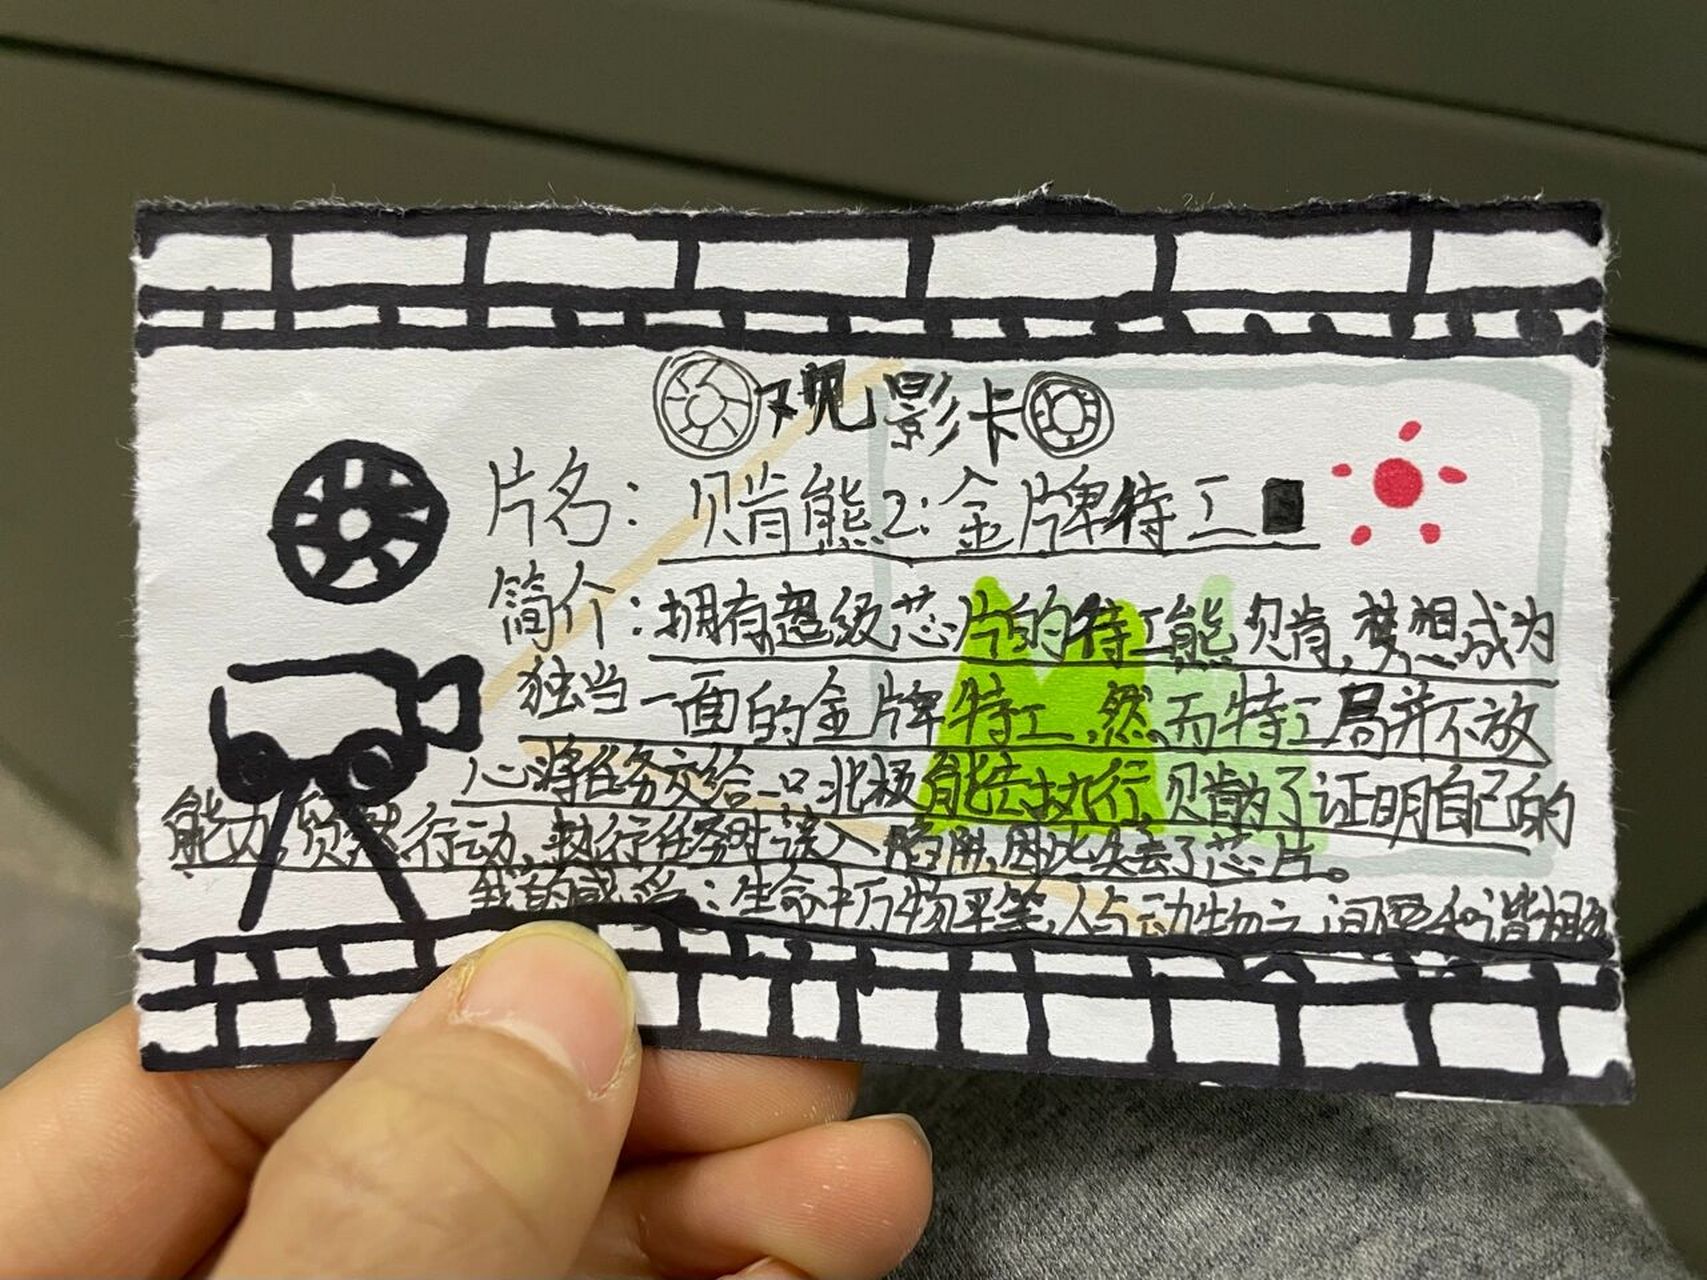 观影卡
片名：贝肯熊2：金牌特工
简介：拥有超级芯片的特工熊贝肯，梦想成为
独当一面的金牌特工，然而特工局并不放
心将任务交给一只北极能去执行 贝肯为了证明自己的
能力，贸然行动，执行任务时误入陷阱，因此失去了芯片。
我的感受：生命中万物平等，人与动物之间要和谐相处